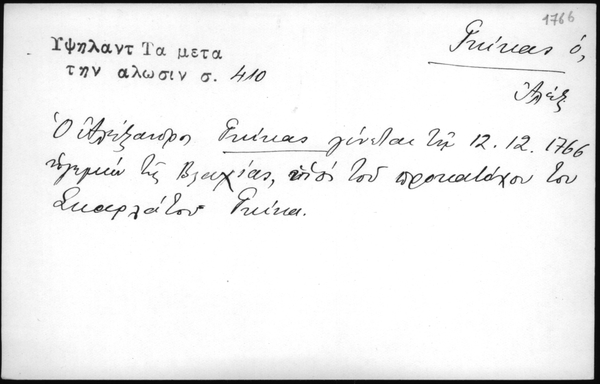 1766
Υψηλαντ Τα μετα
την αλωσιν σ. 410
Γκίκας ὁ,
Ἀλέξ
Ὁ Ἀλέξανδρος Γκίκας γίνεται τῇ 12.12.1766
ἡγεμὼν τῆς Βλαχίας, ἀντὶ τοῦ προκατόχου του
Σκαρλάτου Γκίκα.